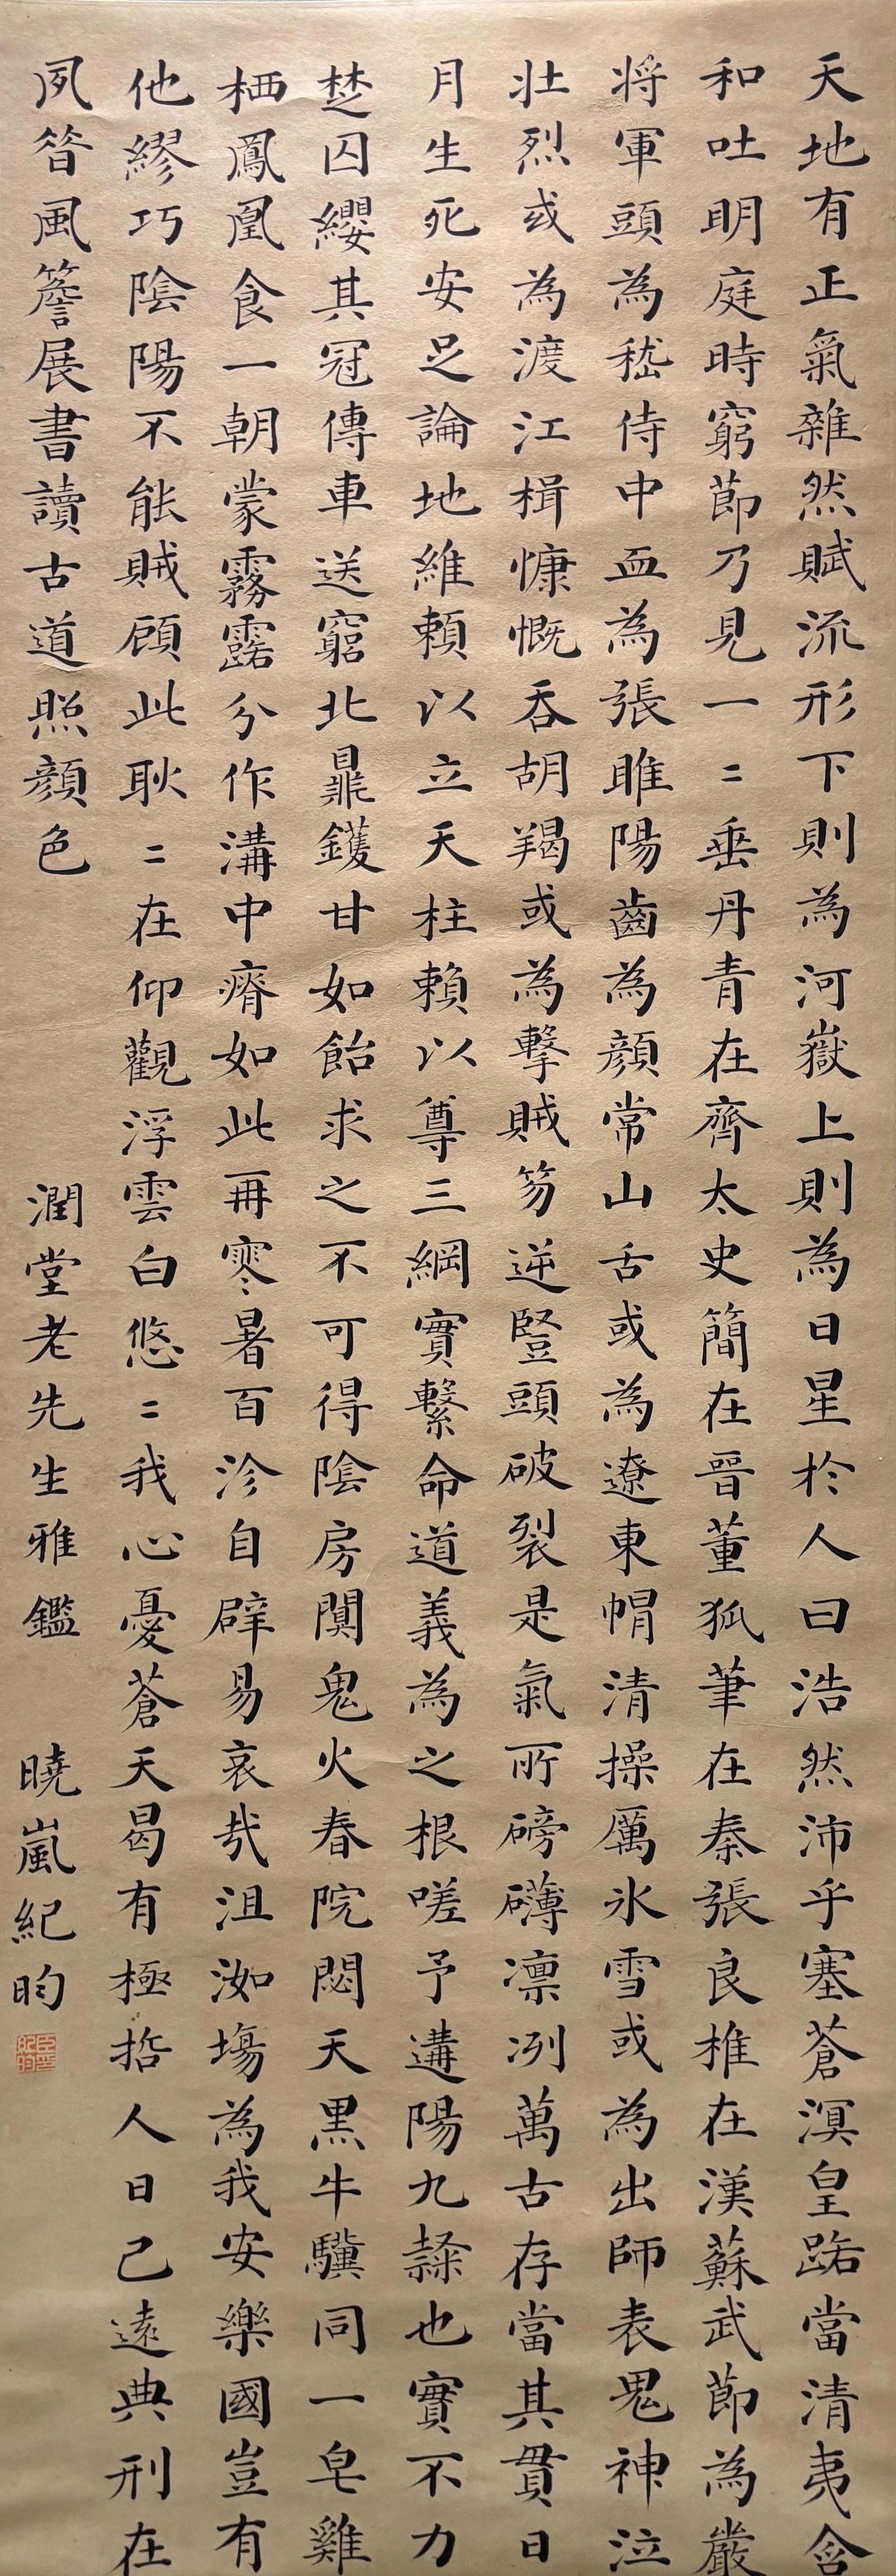 天地有正氣雜然賦流形下則為河嶽上則為日星於人曰浩然沛乎塞蒼溟皇路當清夷含
和吐明庭時窮節乃見一二垂丹青在齊太史簡在晉董狐筆在秦張良椎在漢蘇武節為嚴
將軍頭為嵇侍中血為張睢陽齒為顏常山舌或為遼東帽清操厲氷雪或為出師表鬼神泣
壯烈或為渡江楫慷慨吞胡羯或為擊賊笏逆豎頭破裂是氣所磅礴凛冽萬古存當其貫日
月生死安足論地維賴以立天柱賴以尊三綱實繫命道義為之根嗟予遘陽九隸也實不力
楚囚纓其冠傳車送窮北鼎鑊甘如飴求之不可得陰房闃鬼火春院閟天黑牛驥同一皂雞
栖鳳凰食一朝蒙霧露分作溝中瘠如此再寒暑百沴自辟易哀哉沮洳場為我安樂國豈有
他繆巧陰陽不能賊顧此耿〻在仰觀浮雲白悠〻我心憂蒼天曷有極哲人日已遠典刑在
夙昔風簷展書讀古道照顏色
潤堂老先生雅鑑
曉嵐紀昀